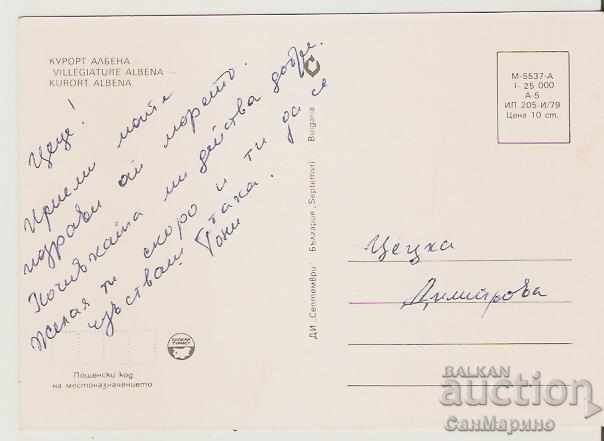 КУРОРТ АЛБЕНА
VILLEGIATURE ALBENA –
KURORT ALBENA
Цеце!
Приеми моите
поздрави от морето.
Почивката ми действа добре.
Желая ти скоро и ти да се
чувстваш така.
Тони
Пощенски код
на местоназначението
БАЛКАН
ТУРИСТ
ДИ „Септември България „Septemvri Bulgaria
М-5537-А
I- 25 000
А-5
ИП 205-И/79
Цена 10 ст.
Цецка
Димитрова
BALKAN
auction
СанМарино